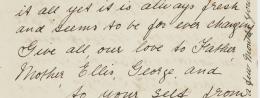 it all yet it is always fresh
and seems to be for ever changing
Give all our love to Father
Mother, Ellis, George, and
to your self from
a few months